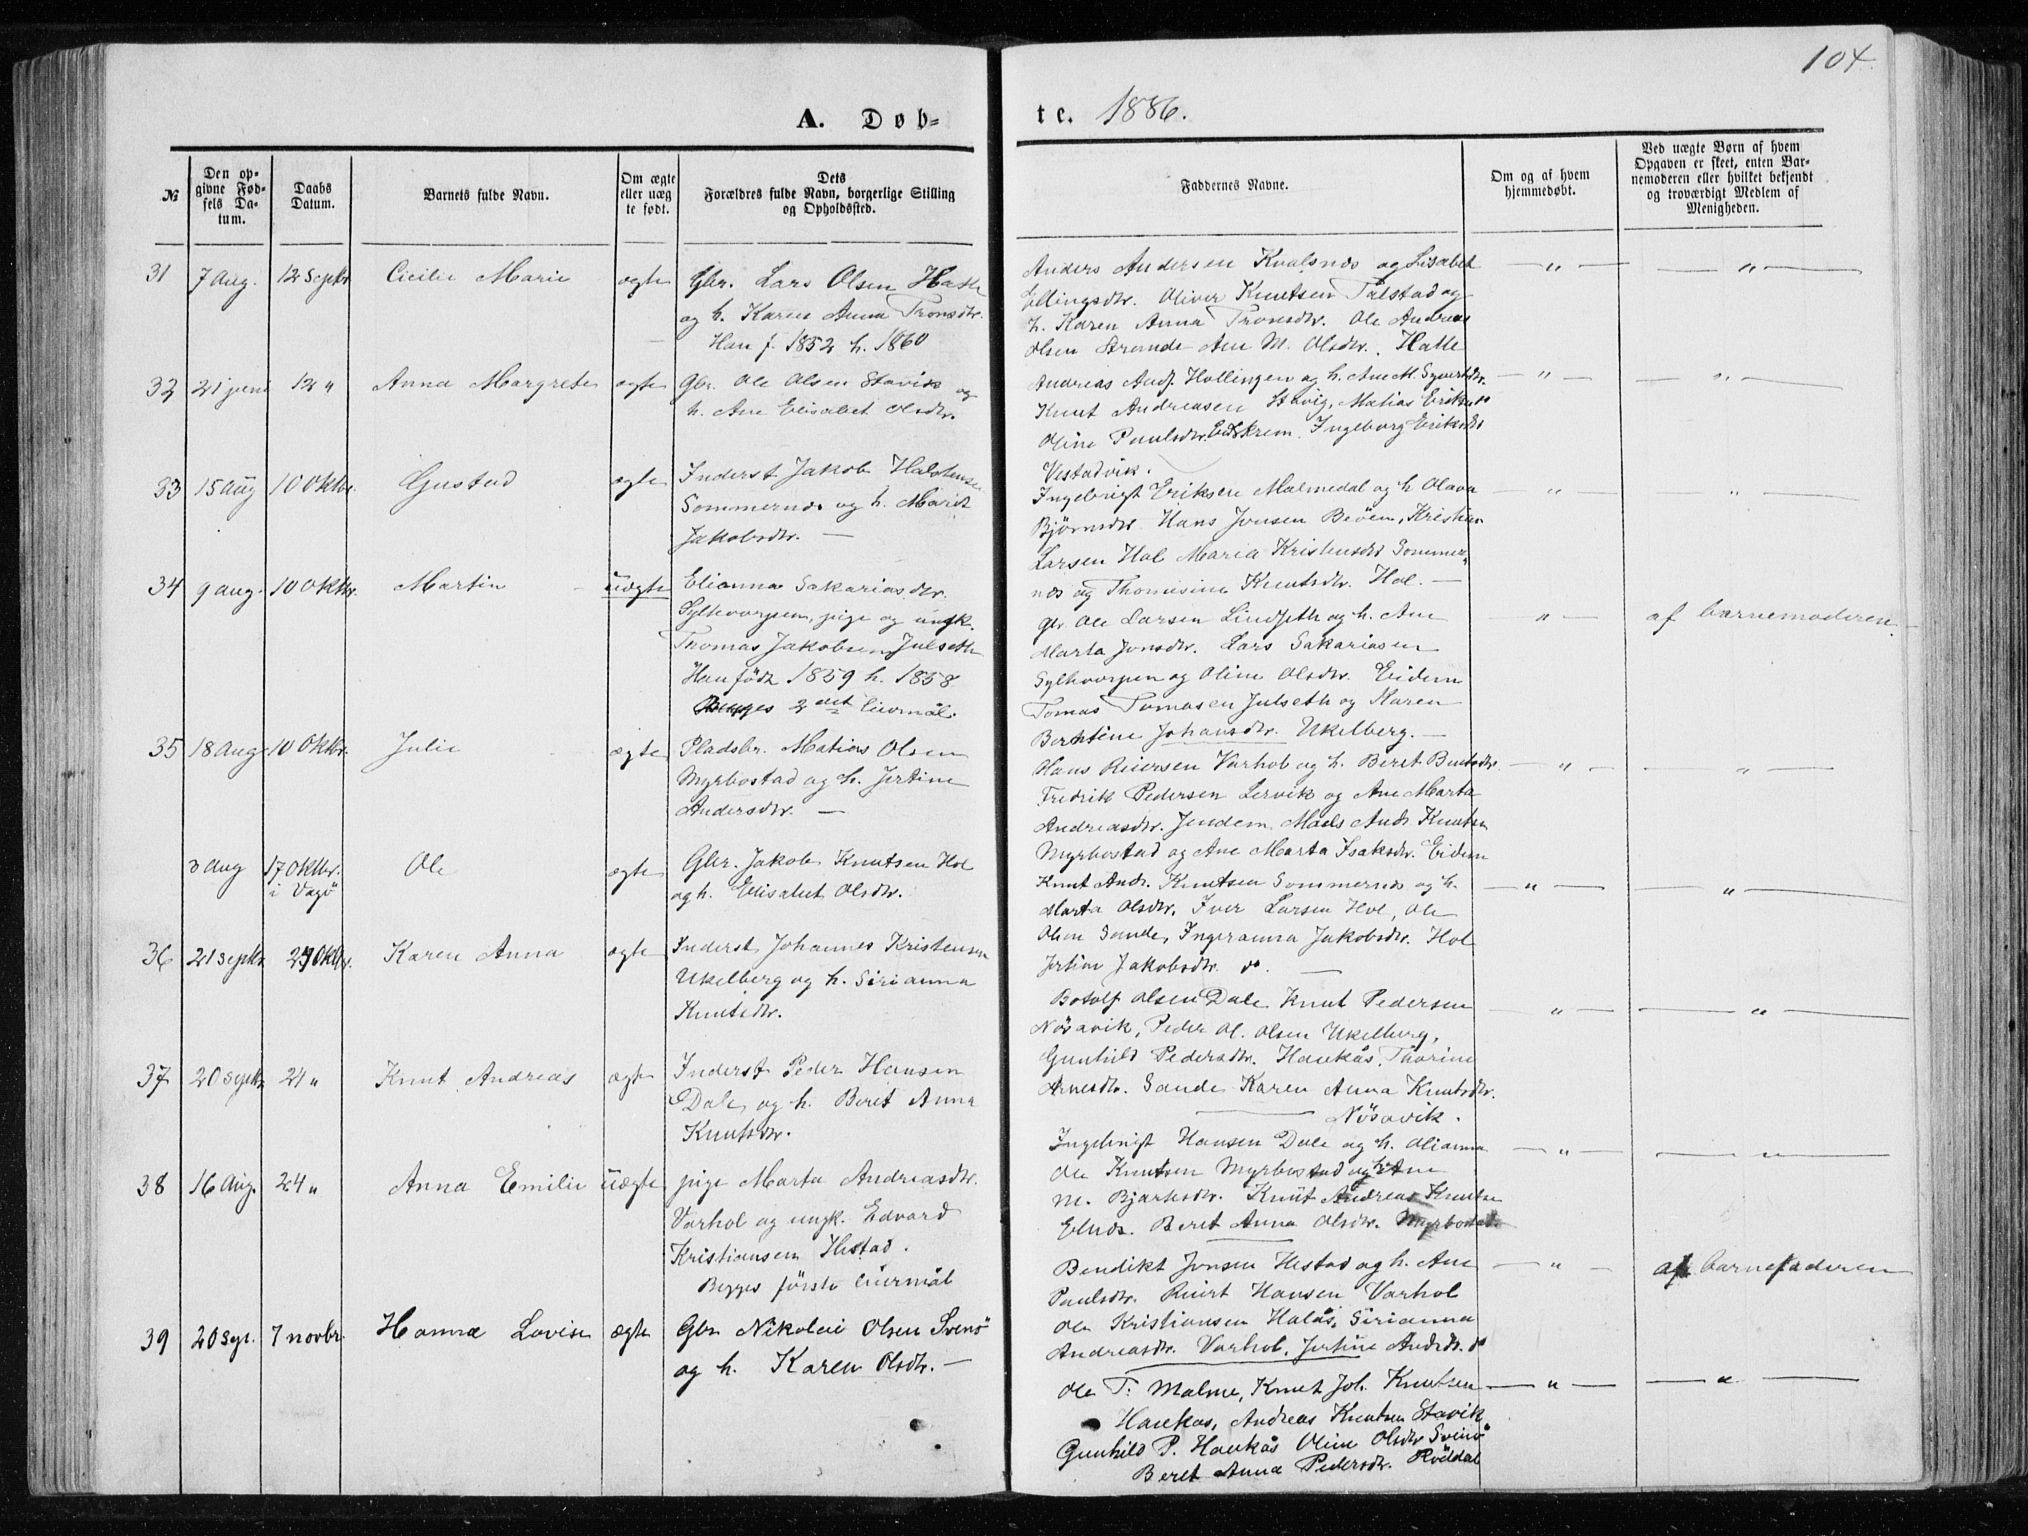 104.
A. Døb=
te. 1886.
№
Den op-
givne Fød-
sels Da-
tum.
Daabs
Datum.
Barnets fulde Navn.
Om ægte
eller uæg
te født.
Dets
Forældres fulde Navn, borgerlige Stilling
og Opholdssted.
Faddernes Navne.
Om og af hvem
hjemmedøbt.
Ved uægte Børn af hvem
Opgaven er skeet, enten Bar-
nemoderen eller hvilket bekjendt
og troværdigt Medlem af
Menigheden.
31 7 Aug. 12 Septr. Cicilie Marie ægte
Gbr. Lars Olsen Hatle
og h. Karen Anna Tronsdtr.
Han f. 1852 h. 1860
Anders Andersen Kvalsnes og Lisabet
Ellingsdtr. Oliver Knutsen Talstad og
h. Karen Anna Tronsdtr. Ole Andreas
Olsen Strande Ane M. Olsdtr. Hatle
— " — — " —
32 21 juni 12 " Anna Margrete ægte
Gbr. Ole Olsen Stavik og
h. Ane Elisabet Olsdtr.
Andreas Andr. Hollingen og h. Ane M. Syvertsdtr.
Knut Andreasen Stavig, Matias Eriksen
Oline Paulsdtr. Eidskrem. Ingeborg Eriksdtr
Vestadvik.
— " — — " —
33 15 aug 10 Oktbr. Gustad ægte
Inderst Jakob Halstensen
Sommernes og h. Marit
Jakobsdtr. —
Ingebrigt Eriksen Malmedal og h Olava
Bjørnsdtr. Hans Jonsen Beöen, Kristian
Larsen Hol Maria Kristensdtr Sommer„
nes og Thomasine Knutsdtr. Hol. —
— " — — " —
34 9 aug. 10 Oktbr. Martin uægte
Elianna Sakariasdtr.
Sylhvorpen, pige og ungk.
Thomas Jakobsen Julseth
Han födt 1859 h. 1858
Begges 2det Leiermål.
Gbr. Ole Larsen Lindseth og h. Ane
Marta Jonsdtr. Lars Sakariasen
Sylhvorpen og Oline Olsdtr. Eidem
Tomas Tomasen Julseth og Karen
Berntine Johansdtr. Ukelberg. —
— " — af barnemoderen.
35 18 Aug 10 Oktbr. Julie ægte
Pladsbr. Matias Olsen
Myrbostad og h. Jertine
Andersdtr. —
Hans Reiersen Varhol og h. Beret Bentsdtr.
Fredrik Pedersen Lervik og Ane Marta
Andreasdtr. Jendem Mads Andr. Knutsen
Myrbostad og Ane Marta Isaksdtr. Eidem
— " — — " —
3 Aug 17 Oktbr. Ole ægte
i Vågö
Gbr. Jakob Knutsen Hol
og h. Elisabet Olsdtr.
Knut Andr. Knutsen Sommernes og h.
Marta Olsdtr. Iver Larsen Hol, Ole
Olsen Sande, Ingeranna Jakobsdtr. Hol
Jertine Jakobsdtr. do. —
— " — — " —
36 21 septr. 24 Oktbr. Karen Anna ægte
Inderst Johannes Kristensen
Ukelberg og h. Sirianna
Knutsdtr.
Botolf Olsen Dale Knut Pedersen
Nösavik, Peder Ol. Olsen Ukelberg,
Gunhild Pedersdtr. Haukås, Thorine
Arnesdtr. Sande Karen Anna Knutsdtr.
Nösavik.
— " — — " —
37 20 septr 24 " Knut Andreas ægte
Inderst Peder Hansen
Dale og h. Berit Anna
Knutsdtr.
Ingebrigt Hansen Dale og h. Olianna
Ole Knutsen Myrbostad og h. Ane
M. Bjarksdtr. Knut Andreas Knutsen
Elnes. Beret Anna Olsdtr. Myrbostad
— " — — " —
38 16 Aug. 24 " Anna Emilie uægte
pige Marta Andreasdtr.
Varhol og ungk. Edvard
Kristiansen Hestad.
Begges første leiermål
Bendikt Jonsen Hestad og h. Ane
Paulsdtr. Reiert Hansen Varhol
Ole Kristiansen Halås, Sirianna
Andreasdtr. Varhol, Jertine Andrdtr. do
— " — af barnefaderen
39 20 sept. 7 novbr. Hanna Lovise ægte
Gbr. Nikolai Olsen Svenö
og h. Karen Olsdtr. —
Ole T. Malme, Knut Joh. Knutsen
Haukås, Andreas Knutsen Stavik
Gunhild P. Haukås Oline Olsdtr Svenö
Beret Anna Pedersdtr. Röddal
— " — — " —